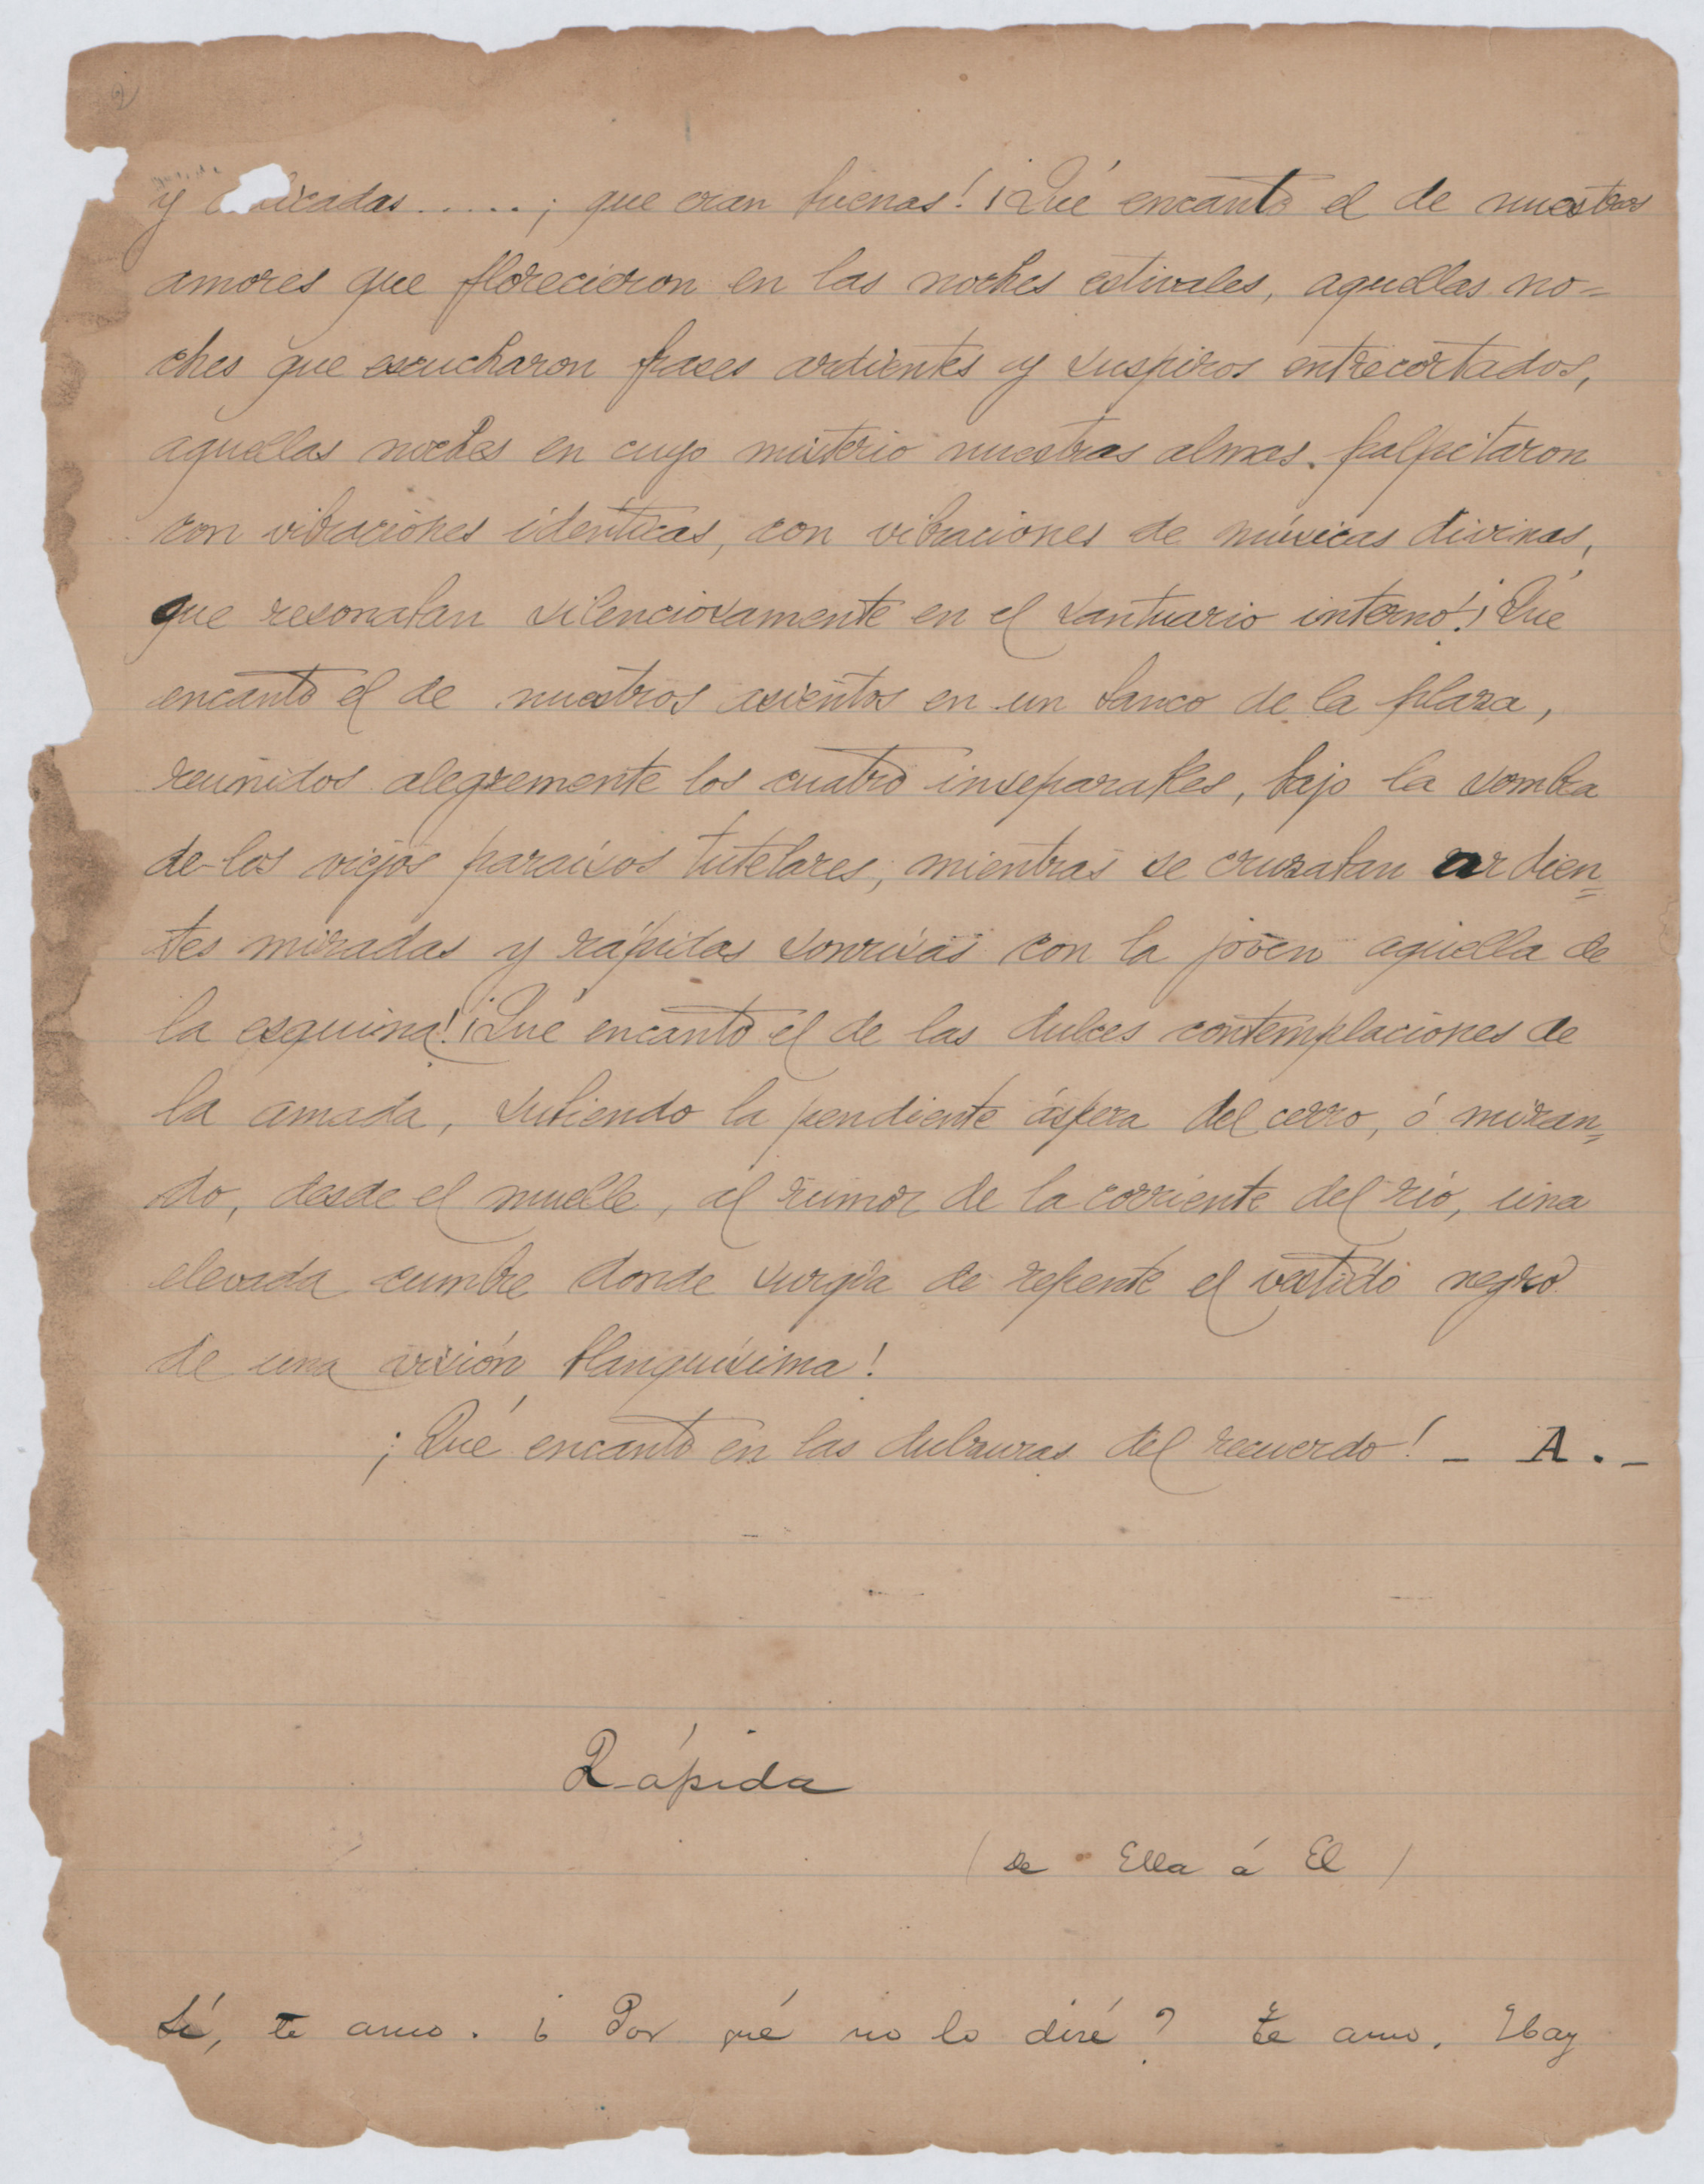 2
y icadas.....; que eran buenas! ¡Qué encanto el de nuestros
amores que florecieron en las noches estivales, aquellas no=
ches que escucharon frases ardientes y suspiros entrecortados,
aquellas noches en cuyo misterio nuestras almas palpitaron
con vibraciones identicas, con vibraciones de músicas divinas,
que resonaban silenciosamente en el santuario interno! ¡Qué
encanto el de nuestros asientos en un banco de la plaza,
reunidos alegremente los cuatro inseparables, bajo la sombra
de los viejos paraísos tutelares, mientras se cruzaban ardien=
tes miradas y rápidas sonrisas con la joven aquella de
la esquina! ¡Qué encanto el de las dulces contemplaciones de
la amada, subiendo la pendiente áspera del cerro, ó miran=
do, desde el muelle, al rumor de la corriente del río, una
elevada cumbre donde surgía de repente el vestido negro
de una visión blanquísima!
¡Qué encanto en las dulzuras del recuerdo! _ A. _
Rápida
(de Ella á El)
Sí, te amo. ¿Por qué no lo diré? Te amo. Hay